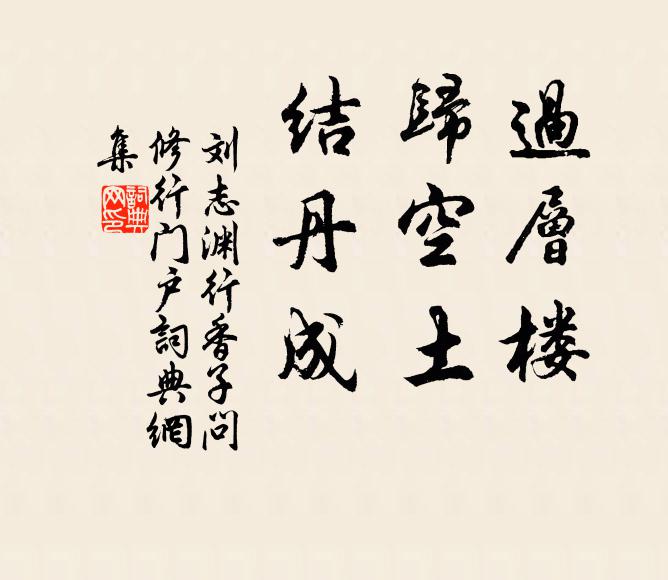 過層楼
歸空土
结丹成
刘志渊行香子问
修行门户詞典網
集
詞典
网印